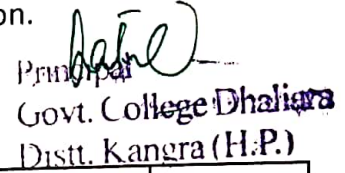 on.
Principal
Govt. College Dhaliara
Distt. Kangra (H.P.)